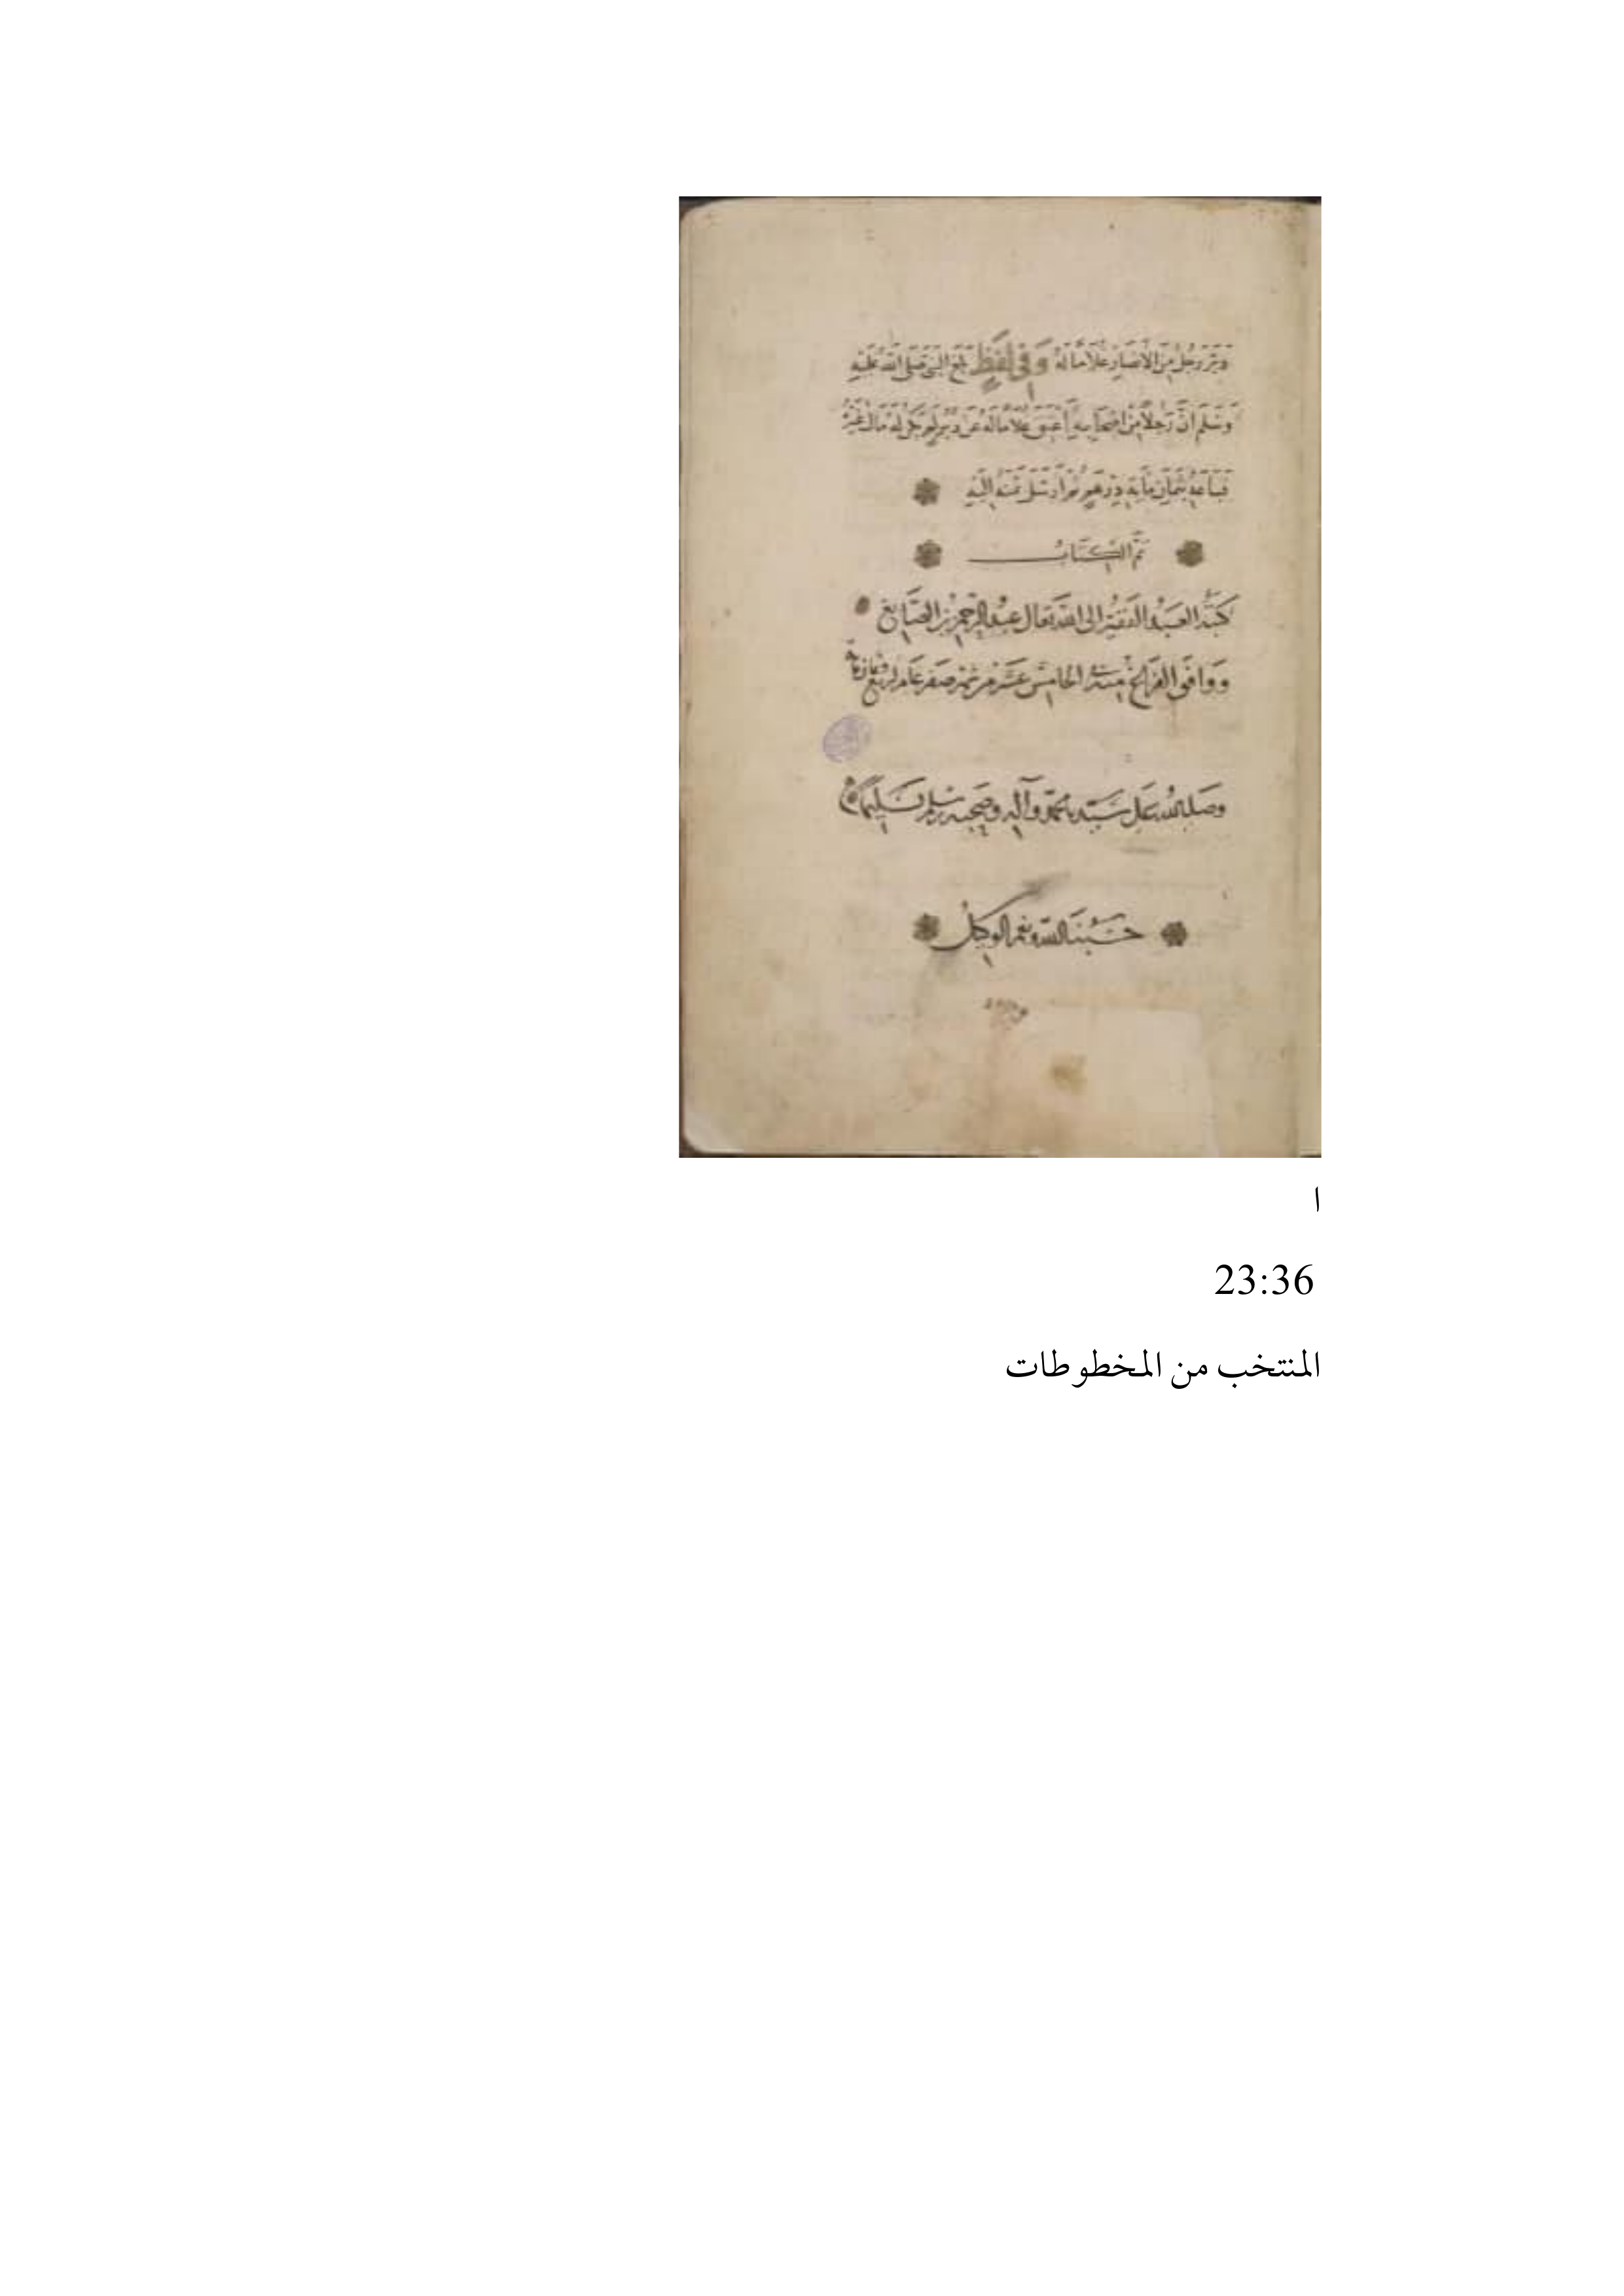 دَبَّرَ رَجُلٌ مِنَ الأنصَارِ غلَامًا لَهُ وَفِي لَفظٍ بَلَغَ النَّبِيَّ صَلَّى اللهُ عَلَيْهِ
وَسَلَّمَ انَّ رَجُلاً مِنْ اصْحَابِهِ أَعْتَقَ غُلَامًا لَهُ عَن دُبُرٍ لَم يَكُن لَهُ مَال غَيْرُ
فبَاعَهُ بثمَانِ مايَةِ دِرهَمٍ ثُمَّ ارسَلَ ثَمَنَهُ إلَيْهِ
تمَّ الكتَابُ
كتَبَهُ العَبْدُ الفَقِيْر الى الله تعَالى عبْد الرحمن بن الصَّايغ
وَوَافَى الفَرَاغ منهُ الخامِسَ عشَر مِن شهر صَفر عَام اربَع وثمانمائة
وصَلى الله عَلى سَيّدنا محمّد وآله وصَحبه وسلم تسْليمًا
حَسْبُنَا الله ونعم الوكيل
ا
23:36
المنتخب من المخطوطات